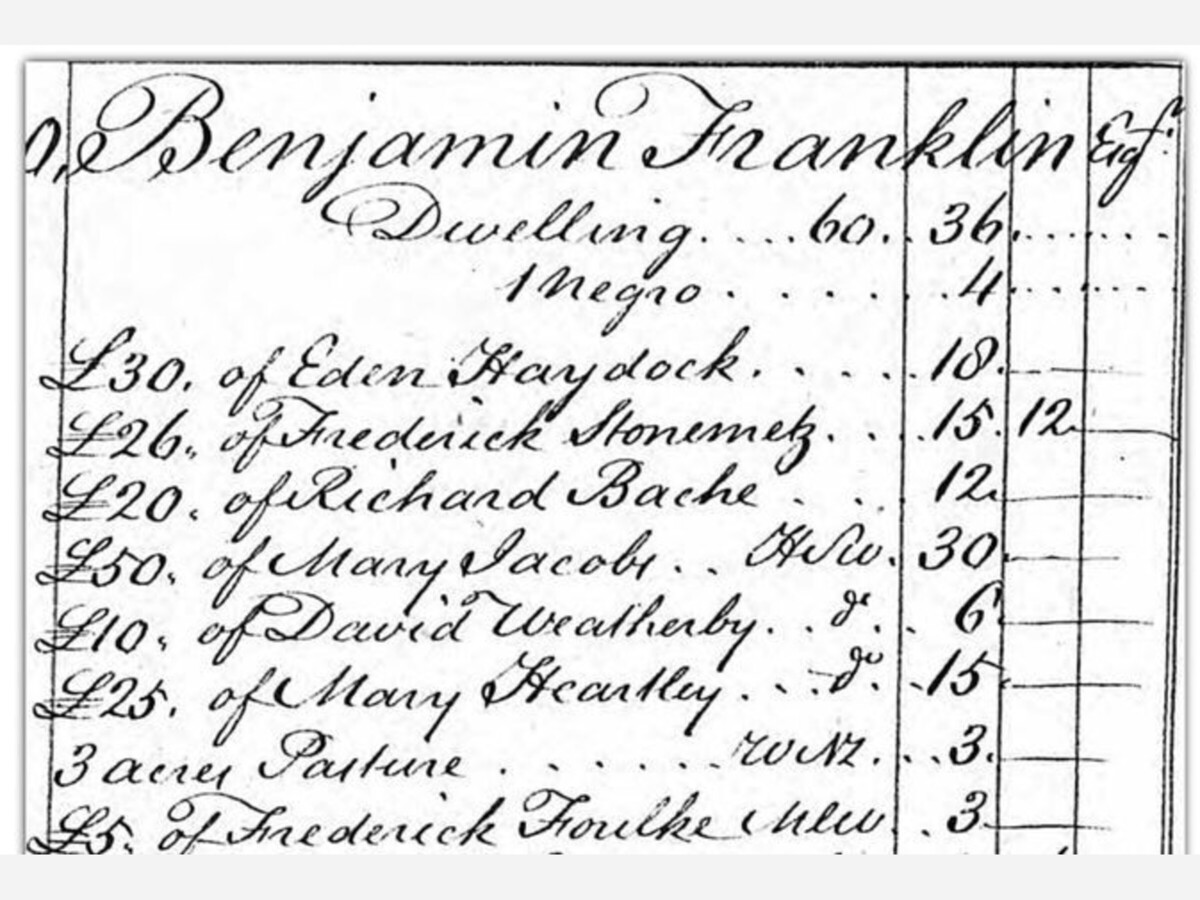 Benjamin Franklin Esqr.
Dwelling. . . . 60. . 36
1 Negro . . . . . . 4
£30. of Eden Haydock. . . . . 18.
£26. of Frederick Stonemetz. . . . 15. 12
£20. of Richard Bache . . . 12.
£50. of Mary Jacobs. . . HSW. 30
£10. of David Weatherby. . . do. . 6
£25. of Mary Heartley. . . . do. . 15
3 acres Pasture . . . . . . WNL. . . 3.
£5. of Frederick Foulke MW. . 3.